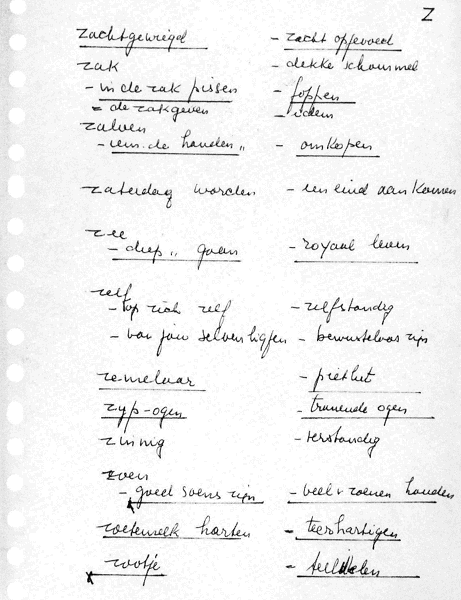 Z
zachtgewiegd - zacht opgevoed
zak - dekke schommel
- in de zak pissen - foppen
= de zak geven - idem
zalven
- iem. de handen „ - omkopen
zaterdag worden - een eind aan komen
zee
- diep „ gaan - royaal leven
zelf
- op zich zelf - zelfstandig
- van jouw selven liggen - bewusteloos zijn
zemelaar - pietlut
zyp-ogen - tranende ogen
zinnig - verstandig
zoen
- goed soens zijn - veel v zoenen houden
zoetemelk harten - teerhartigen
zootje